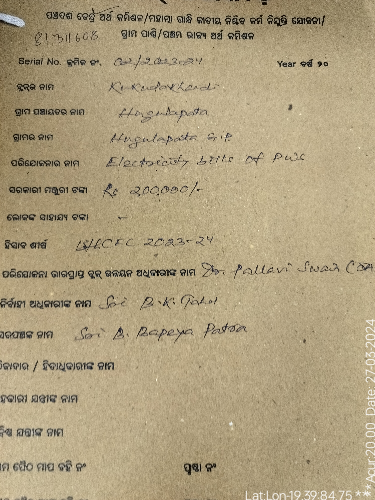 ପଞ୍ଚଦଶ କେନ୍ଦ୍ର ଅର୍ଥ କମିଶନ/ମହାତ୍ମା ଗାନ୍ଧି ଜାତୀୟ ନିଶ୍ଚିତ କର୍ମ ନିଯୁକ୍ତି ଯୋଜନା/
ଗ୍ରାମ ପାଣ୍ଠି/ପଞ୍ଚମ ରାଜ୍ୟ ଅର୍ଥ କମିଶନ
Serial No. କ୍ରମିକ ନଂ. 02/2023-24 Year ବର୍ଷ ୨୦
ବ୍ଲକ୍‌ର ନାମ
ଗ୍ରାମ ପଞ୍ଚାୟତର ନାମ Hugulapata
ଗ୍ରାମର ନାମ Hugulapata G.P
ପରିଯୋଜନାର ନାମ Electricity bills of PWS
ସରକାରୀ ମଞ୍ଜୁରୀ ଟଙ୍କା Rs 200,000/-
ଲୋକଙ୍କ ସାହାଯ୍ୟ ଟଙ୍କା -
ହିସାବ ଶୀର୍ଷ CFC 2023-24
ପରିଯୋଜନା ଭାରପ୍ରାପ୍ତ ବ୍ଲକ୍ ଉନ୍ନୟନ ଅଧିକାରୀଙ୍କ ନାମ Dr. Pallavi Swain
ନିର୍ବାହୀ ଅଧିକାରୀଙ୍କ ନାମ Sri B.K.
ସରପଞ୍ଚଙ୍କ ନାମ Sri B. Bapeya Patra
/ ହିତାଧିକାରୀଙ୍କ ନାମ
ଯନ୍ତ୍ରୀଙ୍କ ନାମ
ଯନ୍ତ୍ରୀଙ୍କ ନାମ
ମାପ ବହି ନଂ ପୃଷ୍ଠା ନଂ
Lat:Lon-19.39:84.75 *** Acur:20.00 Date: 27-03 2024